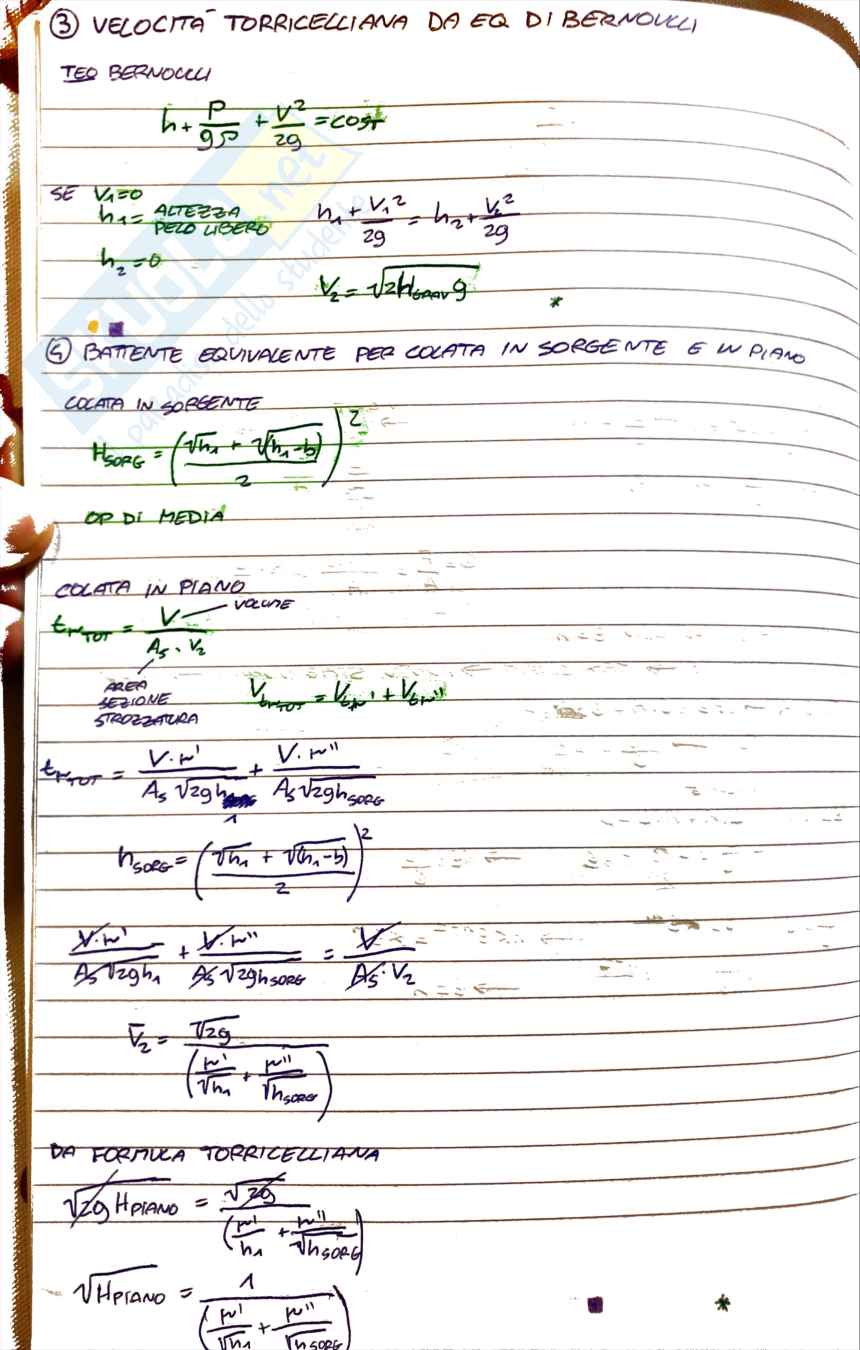 ③ VELOCITÀ TORRICELLIANA DA EQ DI BERNOULLI
TEO BERNOULLI
h + P/gρ + V²/2g = COST
SE V₁=0
h₁= ALTEZZA PELO LIBERO
h₂=0
h₁ + V₁²/2g = h₂ + V₂²/2g
V₂ = √2H_GRAV g *
④ BATTENTE EQUIVALENTE PER COLATA IN SORGENTE E IN PIANO
COLATA IN SORGENTE
H_SORG = ((√h₁ + √(h₁-b))/2)²
OP DI MEDIA
COLATA IN PIANO
t_r_TOT = V/(A_S · V₂)
VOLUME
AREA
SEZIONE
STROZZATURA
V_tr_TOT = V_tr' + V_tr''
t_r_TOT = V·r'/(A_S √2gh₁) + V·r''/(A_S √2gh_SORG)
h_SORG = ((√h₁ + √(h₁-b))/2)²
V·r'/(A_S √2gh₁) + V·r''/(A_S √2gh_SORG) = V/(A_S · V₂)
V̄₂ = √2g/(r'/√h₁ + r''/√h_SORG)
DA FORMULA TORRICELLIANA
√2g H_PIANO = √2g/(r'/h₁ + r''/√h_SORG)
√H_PIANO = 1/(r'/√h₁ + r''/√h_SORG)
*